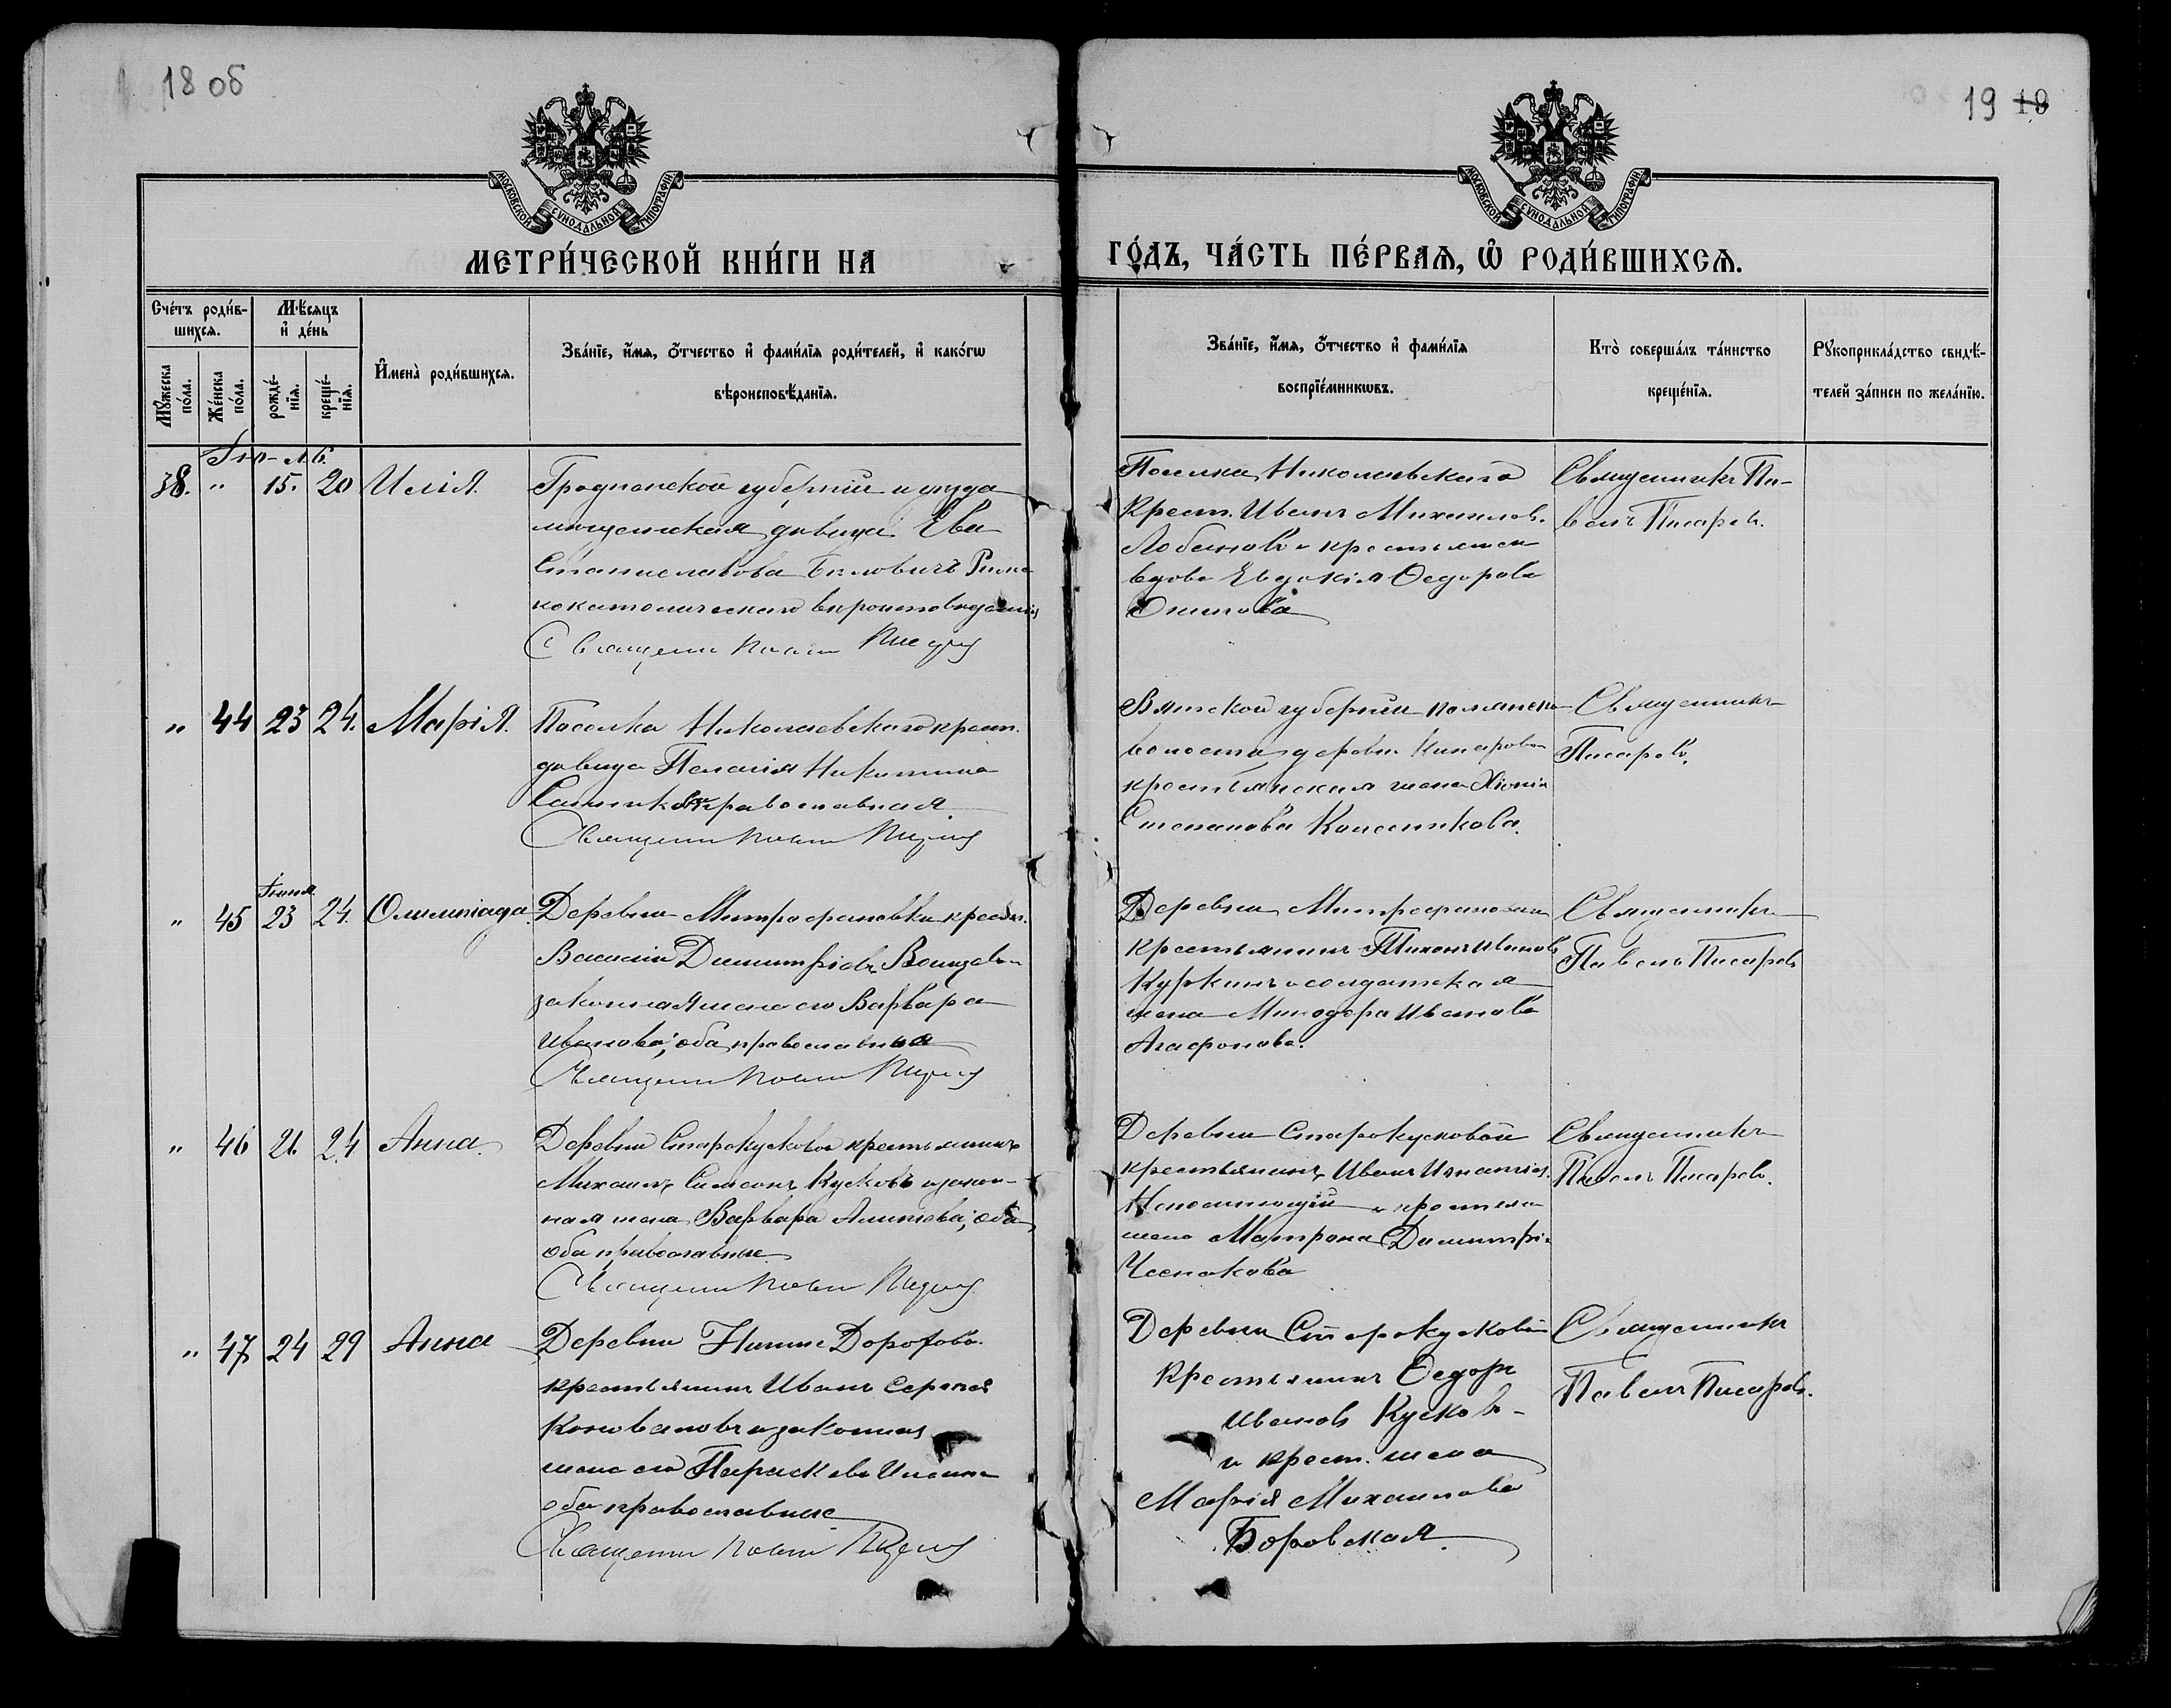 18 об
19 19
МОСКОВСКОЙ СѴНОДАЛЬНОЙ ТИПОГРАФІИ
МОСКОВСКОЙ СѴНОДАЛЬНОЙ ТИПОГРАФІИ
МЕТРИ́ЧЕСКОЙ КНИ́ГИ НА
ГО́ДЪ, ЧА́СТЬ ПЕ́РВАѦ, Ѡ҆ РОДИ́ВШИХСѦ.
Сче́тъ роди́в-
шихсѧ.
Мѣ́сѧцъ
и҆ де́нь
Мꙋ́жеска
по́ла.
Же́нска
по́ла.
рожде́-
нїѧ.
креще́-
нїѧ.
И҆мена̀ роди́вшихсѧ.
Зва́нїе, и҆́мѧ, ѻ҆́тчество и҆ фами́лїѧ роди́телей, и҆ како́гѡ
вѣроисповѣ́данїѧ.
Зва́нїе, и҆́мѧ, ѻ҆́тчество и҆ фами́лїѧ
воспрїе́мникѡвъ.
Кто̀ соверша́лъ та́инство
креще́нїѧ.
Рꙋкоприкла́дство свидѣ́-
телей за́писи по жела́нїю.
38. " 15. 20 Илія.
Гродненской губерніи и уезда
мещанская девица Ева
Станиславова Римс-
кокатолическаго вероисповеданія
Поселка Николаевскаго
Крест. Иванъ Михаилов.
Лобановъ и крестьянск
вдова Евдокія Ѳедорова
Священникъ Па-
велъ Писаревъ.
" 44 23 24. Марія.
Поселка Николаевскаго крест.
девица Пелагія Никитина
православная.
Вятской губерніи
волости деревни
крестьянская жена Хіонія
Степанова Колесникова.
Священникъ
Писаревъ.
Іюня
" 45 23 24. Олимпіада.
Деревни Митрофановки крест.
Василій Димитріевъ
законная жена его Варвара
Иванова; оба православныя
Деревни Митрофановки
крестьянинъ Тихонъ Ивановъ
Куркинъ и солдатская
жена Минодора Иванова
Агафонова.
Священникъ
Павелъ Писаревъ
" 46 21. 24 Анна.
Деревни Старокусковой крестьянинъ
Михаилъ Кусковъ и закон-
ная жена Варвара оба,
оба православные
Деревни Старокусковой
крестьянинъ Иванъ Игнатіев.
и крестьян
жена Матрона Димитрі.
Чеснокова
Священникъ
Павелъ Писаревъ.
" 47 24 29 Анна
Деревни Ниже Дорохова.
крестьянинъ Иванъ Сергеев
Коноваловъ и законная
жена его Параскева
оба православные
Деревни Старокусковой
крестьянинъ Ѳедоръ
Ивановъ Кусковъ-
и крест. жена
Марія Михаилова
Боровская.
Священникъ
Павелъ Писаревъ.